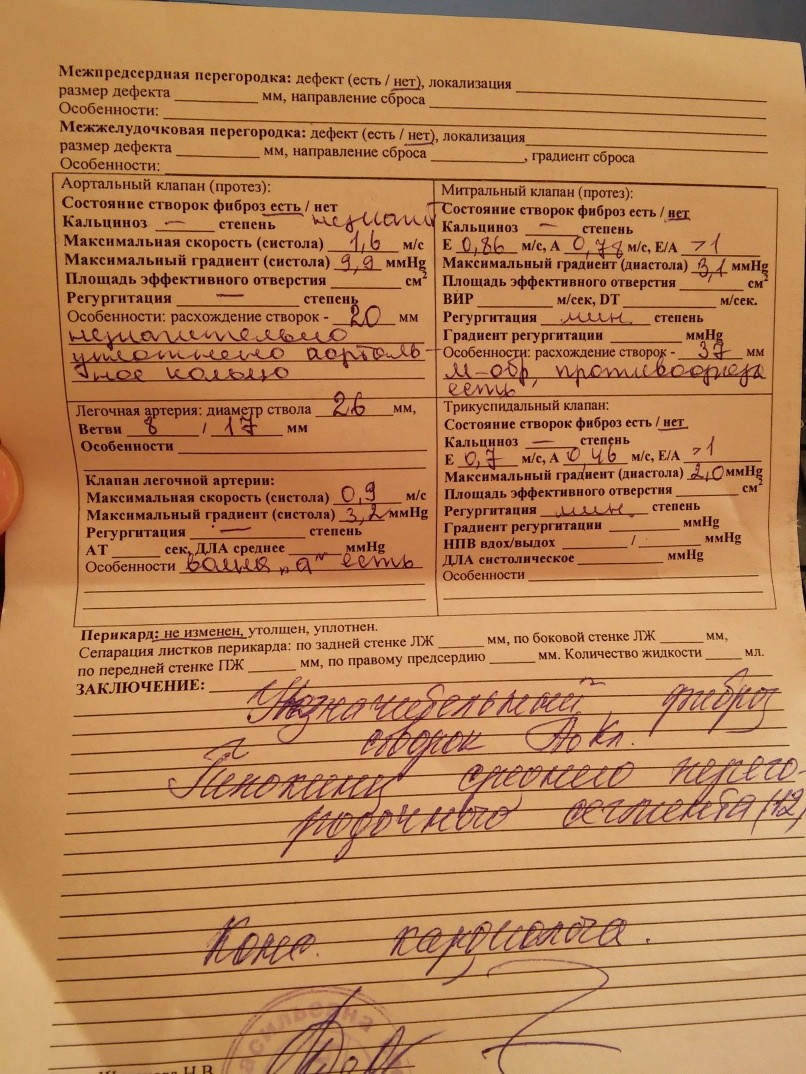 Межпредсердная перегородка: дефект (есть / нет), локализация
размер дефекта мм, направление сброса
Особенности:
Межжелудочковая перегородка: дефект (есть / нет), локализация
размер дефекта мм, направление сброса , градиент сброса
Особенности:
Аортальный клапан (протез):
Состояние створок фиброз есть / нет
Кальциноз — степень незначит
Максимальная скорость (систола) 1,6 м/с
Максимальный градиент (систола) 9,9 mmHg
Площадь эффективного отверстия см²
Регургитация — степень
Особенности: расхождение створок - 20 мм
незначительно
уплотнено аорталь-
ное кольцо
Митральный клапан (протез):
Состояние створок фиброз есть / нет
Кальциноз — степень
E 0,86 м/с, A 0,78 м/с, E/A >1
Максимальный градиент (диастола) 3,1 mmHg
Площадь эффективного отверстия см²
ВИР м/сек, DT м/сек.
Регургитация мин. степень
Градиент регургитации mmHg
Особенности: расхождение створок - 37 мм
М-обр, противоофаза
есть
Легочная артерия: диаметр ствола 26 мм,
Ветви 8 / 17 мм
Особенности
Клапан легочной артерии:
Максимальная скорость (систола) 0,9 м/с
Максимальный градиент (систола) 3,2 mmHg
Регургитация — степень
АТ сек, ДЛА среднее mmHg
Особенности волна „а" есть
Трикуспидальный клапан:
Состояние створок фиброз есть / нет
Кальциноз — степень
E 0,7 м/с, A 0,46 м/с, E/A >1
Максимальный градиент (диастола) 2,0 mmHg
Площадь эффективного отверстия см²
Регургитация мин. степень
Градиент регургитации mmHg
НПВ вдох/выдох / mmHg
ДЛА систолическое mmHg
Особенности
Перикард: не изменен, утолщен, уплотнен.
Сепарация листков перикарда: по задней стенке ЛЖ мм, по боковой стенке ЛЖ мм,
по передней стенке ПЖ мм, по правому предсердию мм. Количество жидкости мл.
ЗАКЛЮЧЕНИЕ:
Незначительный фиброз
створок АоКл.
Гипокинез среднего перего-
родочного сегмента (12)
Конс. кардиолога.
Н.В.